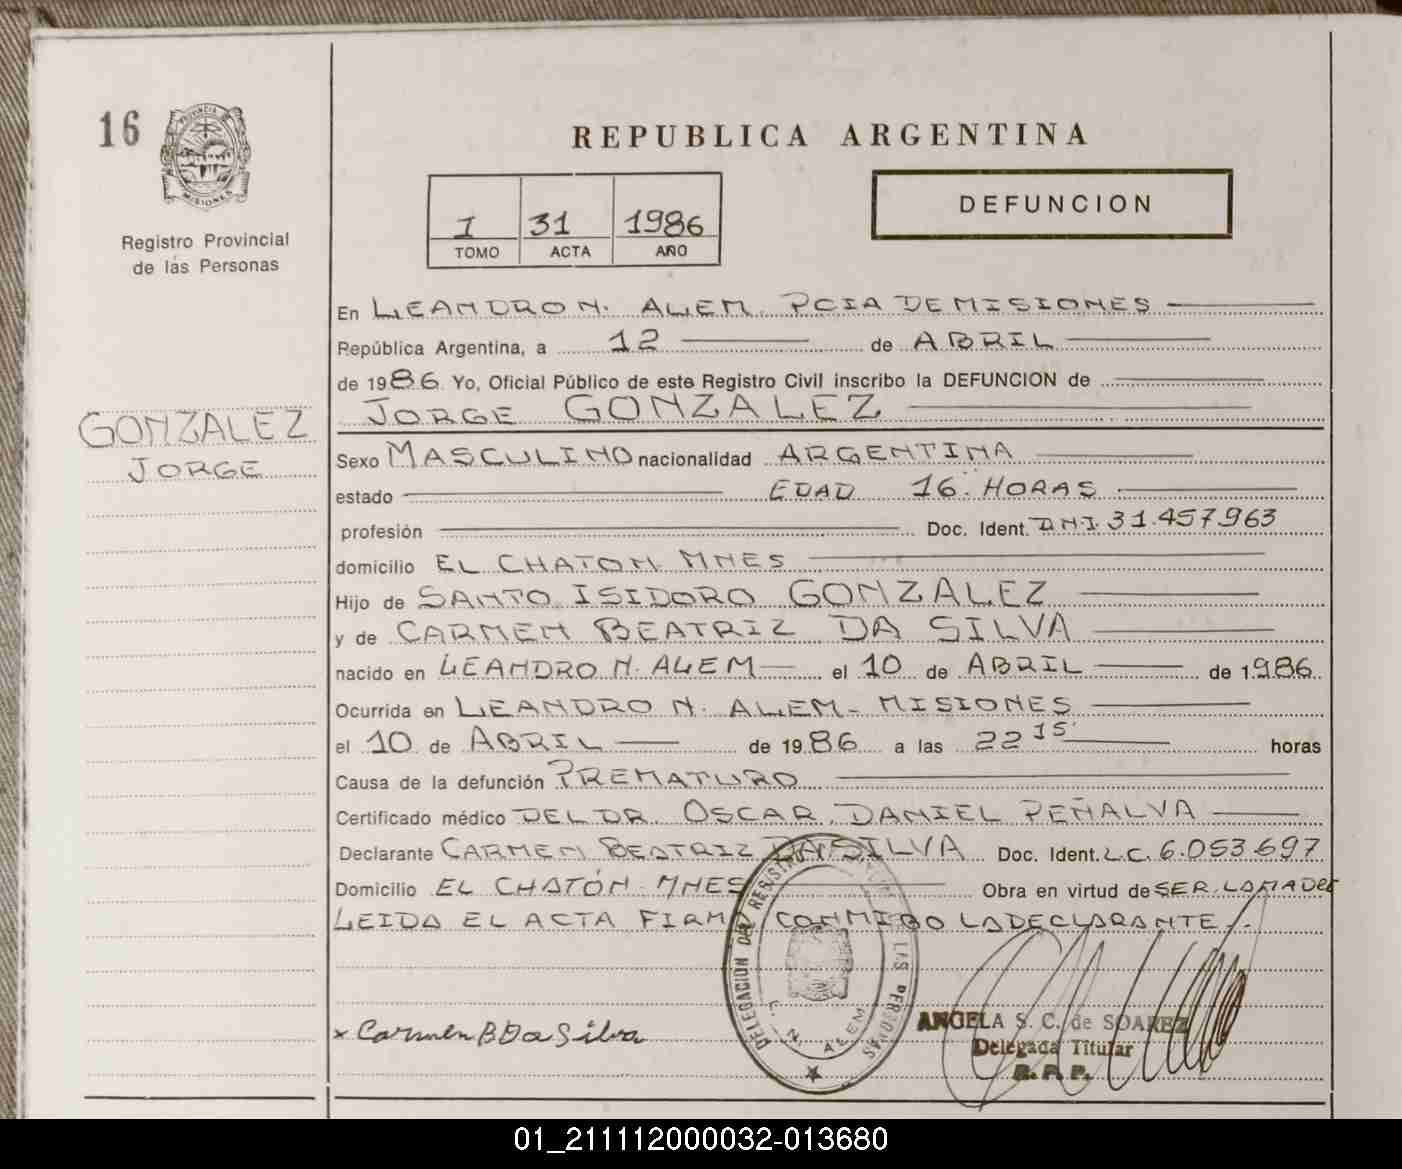 16
PROVINCIA DE
MISIONES
Registro Provincial
de las Personas
REPUBLICA ARGENTINA
I 31 1986
TOMO ACTA AÑO
DEFUNCION
En LEANDRO N. ALEM. PCIA DE MISIONES
República Argentina, a 12 de ABRIL
de 1986 Yo, Oficial Público de este Registro Civil inscribo la DEFUNCION de
JORGE GONZALEZ
GONZALEZ
JORGE
Sexo MASCULINO nacionalidad ARGENTINA
estado EDAD 16. HORAS
profesión Doc. Ident. D.N.I. 31.457.963
domicilio EL CHATON. MNES
Hijo de SANTO ISIDORO GONZALEZ
y de CARMEN BEATRIZ DA SILVA
nacido en LEANDRO N. ALEM el 10 de ABRIL de 1986
Ocurrida en LEANDRO N. ALEM - MISIONES
el 10 de ABRIL de 1986 a las 22 15 horas
Causa de la defunción PREMATURO
Certificado médico DEL DR. OSCAR DANIEL PEÑALVA
Declarante CARMEN BEATRIZ DA SILVA Doc. Ident. L.C. 6.053.697
Domicilio EL CHATÓN. MNES Obra en virtud de SER LA MADRE
LEIDA EL ACTA FIRMA CONMIGO LA DECLARANTE.-
DELEGACION DEL REGISTRO LAS PERSONAS
L. N. ALEM
x Carmen B Da Silva
ANGELA S. C. de SOAREZ
Delegada Titular
R. P. P.
01_211112000032-013680